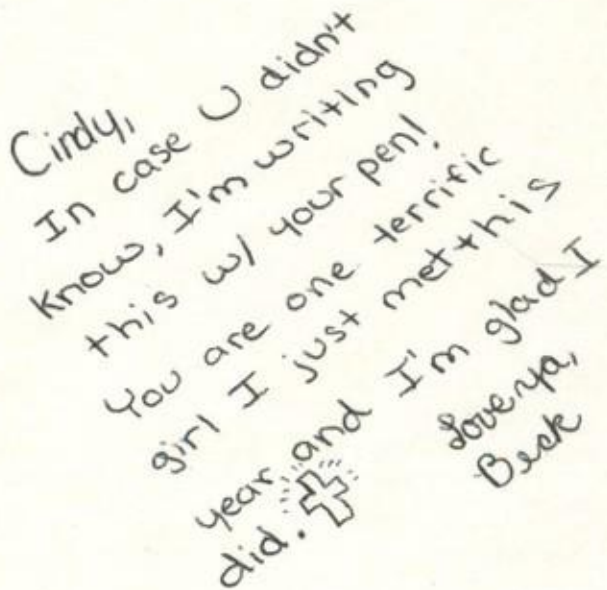 Cindy,
In case U didn't
know, I'm writing
this w/ your pen!
You are one terrific
girl I just met this
year and I'm glad I
did.
Love ya,
Beck